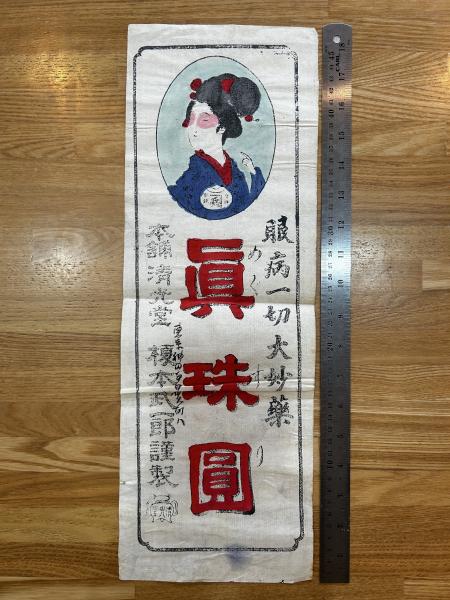 眼病一切大妙藥
めぐすり
眞珠圓
本舗清光堂 榎本政一郎謹製